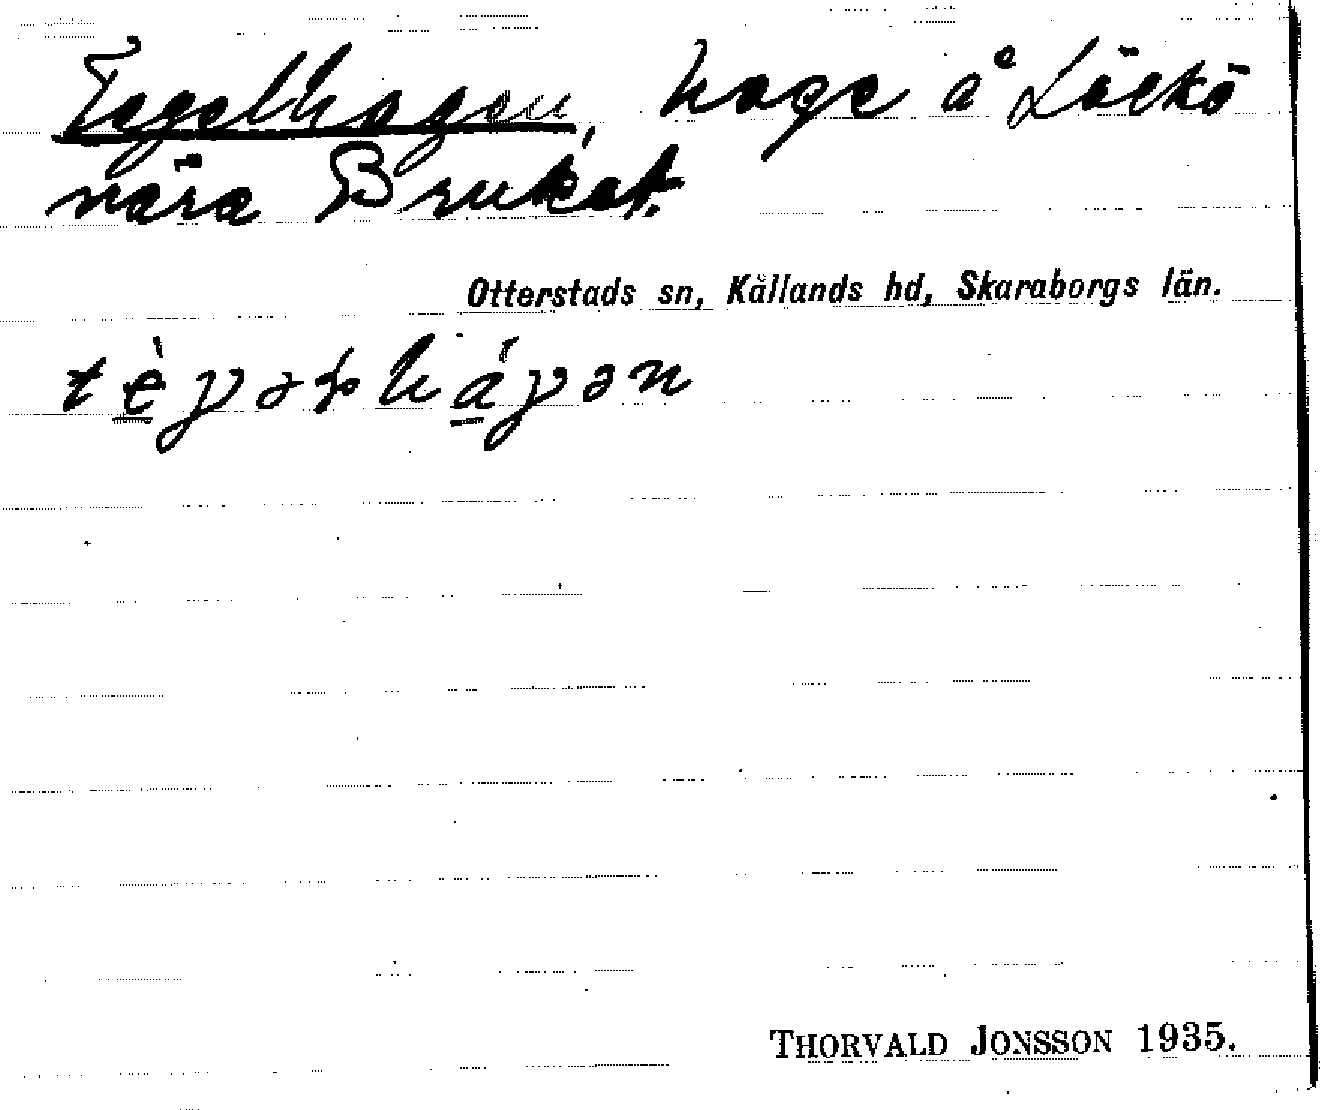 Tegelhagen, hage å Läckö
nära Bruket.
Otterstads sn, Kållands hd, Skaraborgs län.
THORVALD JONSSON 1935.